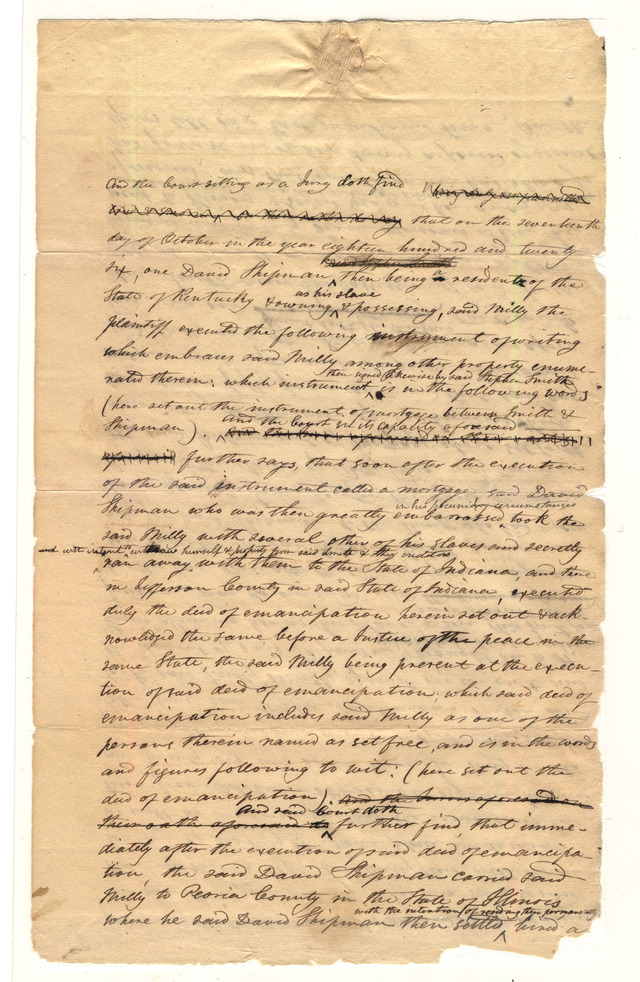 And the Court sitting as a Jury doth find
that on the seventeenth
day of October in the year eighteen hundred and twenty
six, one David Shipman, then being a resident of the
State of Kentucky & owning
as his slave
& possessing, said Milly the
plaintiff executed the following instrument of writing
which embraces said Milly among other property enume-
rated therein; which instrument
then signed likewise by said Stephen Smith
is in the following words
(here set out the instrument of mortgage between Smith &
Shipman).
and the Court in its capacity aforesaid
further says, that soon after the execution
of the said instrument called a mortgage, said David
Shipman who was then greatly embarrassed
in his pecuniary circumstances
took the
said Milly with several other of his slaves and secretly
and with intent to withdraw himself & property from said Smith & other creditors
ran away with them to the State of Indiana, and there
in Jefferson County in said State of Indiana, executed
duly the deed of emancipation herein set out & ack
nowledged the same before a Justice of the peace in the
same State, the said Milly being present at the execu-
tion of said deed of emancipation; which said deed of
emancipation includes said Milly as one of the
persons therein named as set free, and is in the words
and figures following to wit: (here set out the
deed of emancipation).
And said Court doth
further find, that imme-
diately after the execution of said deed of emancipa-
tion, the said David Shipman carried said
Milly to Peoria County in the State of Illinois
where he said David Shipman then settled
with the intention of residing there permanently
hired a